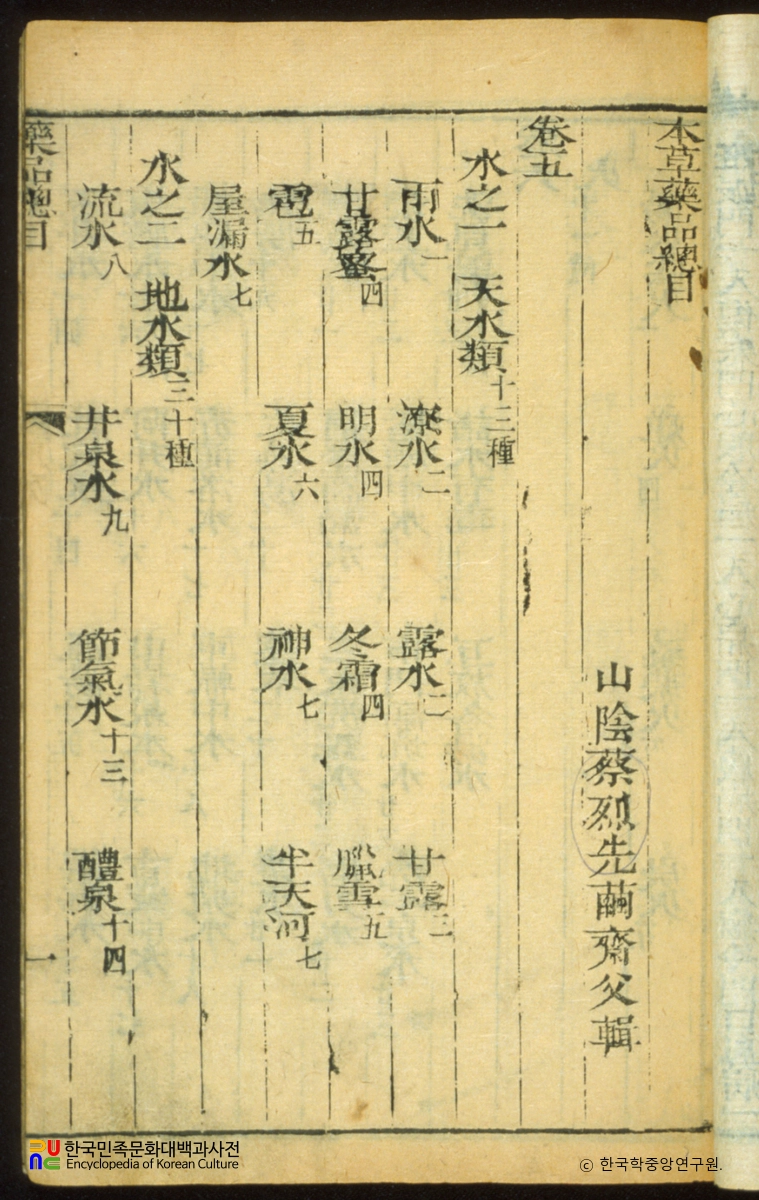 本草藥品總目
山陰蔡烈先繭齋父輯
卷五
水之一 天水類十三種
雨水一 潦水二 露水二 甘露三
甘露蜜四 明水四 冬霜四 臘雪五
雹五 夏冰六 神水七 半天河七
屋漏水七
水之二 地水類三十種
流水八 井泉水九 節氣水十三 醴泉十四
藥品總目 一
한국민족문화대백과사전
Encyclopedia of Korean Culture
ⓒ 한국학중앙연구원.